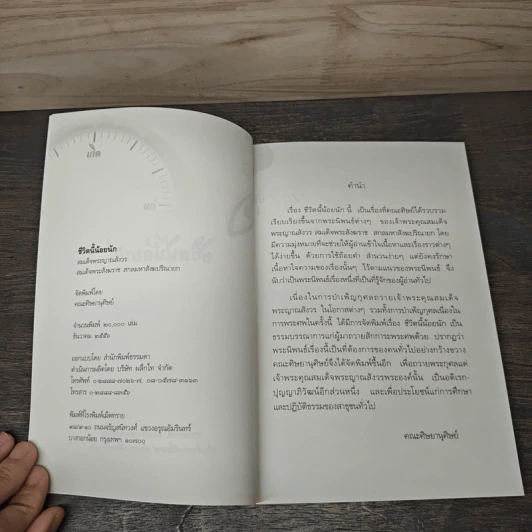 เกิด
แก่
ชีวิตนี้น้อยนัก
สมเด็จพระญาณสังวร
สมเด็จพระสังฆราช สกลมหาสังฆปริณายก
จัดพิมพ์โดย
คณะศิษยานุศิษย์
จำนวนพิมพ์ ๒๐,๐๐๐ เล่ม
ธันวาคม ๒๕๕๖
ออกแบบโดย สำนักพิมพ์ธรรมดา
ดำเนินการผลิตโดย บริษัท ผลึกไท จำกัด
โทรศัพท์
โทรสาร
พิมพ์ที่โรงพิมพ์เม็ดทราย
ถนนจรัญสนิทวงศ์ แขวงอรุณอัมรินทร์
บางกอกน้อย กรุงเทพฯ ๑๐๗๐๐
คำนำ
เรื่อง ชีวิตนี้น้อยนัก นี้ เป็นเรื่องที่คณะศิษย์ได้รวบรวม
เรียบเรียงขึ้นจากพระนิพนธ์ต่างๆ ของเจ้าพระคุณสมเด็จ
พระญาณสังวร สมเด็จพระสังฆราช สกลมหาสังฆปริณายก โดย
มีความมุ่งหมายที่จะช่วยให้ผู้อ่านเข้าใจเนื้อหาและเรื่องราวต่างๆ
ได้ง่ายขึ้น ด้วยการใช้ถ้อยคำ สำนวนง่ายๆ แต่ยังคงรักษา
เนื้อหาใจความของเรื่องนั้นๆ ไว้ตามแนวของพระนิพนธ์ จึง
นับว่าเป็นพระนิพนธ์เรื่องหนึ่งที่เป็นที่รู้จักของผู้อ่านทั่วไป
เนื่องในการบำเพ็ญกุศลถวายเจ้าพระคุณสมเด็จ
พระญาณสังวร ในโอกาสต่างๆ รวมทั้งการบำเพ็ญกุศลเนื่องใน
การพระศพในครั้งนี้ ได้มีการจัดพิมพ์เรื่อง ชีวิตนี้น้อยนัก เป็น
ธรรมบรรณาการแก่ผู้มาถวายสักการะพระศพด้วย ปรากฏว่า
พระนิพนธ์เรื่องนี้เป็นที่ต้องการของคนทั่วไปอย่างกว้างขวาง
คณะศิษยานุศิษย์จึงได้จัดพิมพ์ขึ้นอีก เพื่อถวายพระกุศลแด่
เจ้าพระคุณสมเด็จพระญาณสังวรพระองค์นั้น เป็นอดิเรก-
ปุญญาภิวัฒน์อีกส่วนหนึ่ง และเพื่อประโยชน์แก่การศึกษา
และปฏิบัติธรรมของสาธุชนทั่วไป
คณะศิษยานุศิษย์